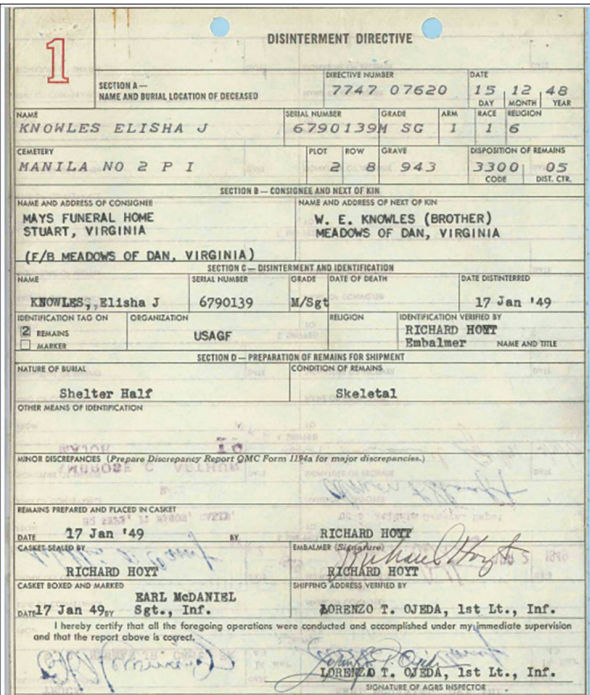 1
DISINTERMENT DIRECTIVE
SECTION A—
NAME AND BURIAL LOCATION OF DECEASED
DIRECTIVE NUMBER
7747 07620
DATE
15 12 48
DAY MONTH YEAR
NAME
KNOWLES ELISHA J
SERIAL NUMBER
6790139
GRADE
M SG
ARM
1
RACE
1
RELIGION
6
CEMETERY
MANILA NO 2 P I
PLOT
2
ROW
8
GRAVE
943
DISPOSITION OF REMAINS
3300 05
CODE DIST. CTR.
SECTION B—CONSIGNEE AND NEXT OF KIN
NAME AND ADDRESS OF CONSIGNEE
MAYS FUNERAL HOME
STUART, VIRGINIA
(F/B MEADOWS OF DAN, VIRGINIA)
NAME AND ADDRESS OF NEXT OF KIN
W. E. KNOWLES (BROTHER)
MEADOWS OF DAN, VIRGINIA
SECTION C—DISINTERMENT AND IDENTIFICATION
NAME
KNOWLES, Elisha J
SERIAL NUMBER
6790139
GRADE
M/Sgt
DATE OF DEATH
DATE DISTINTERRED
17 Jan '49
IDENTIFICATION TAG ON
2 REMAINS
MARKER
ORGANIZATION
USAGF
RELIGION
IDENTIFICATION VERIFIED BY
RICHARD HOYT
Embalmer NAME AND TITLE
SECTION D—PREPARATION OF REMAINS FOR SHIPMENT
NATURE OF BURIAL
Shelter Half
CONDITION OF REMAINS
Skeletal
OTHER MEANS OF IDENTIFICATION
MINOR DISCREPANCIES (Prepare Discrepancy Report QMC Form 1194a for major discrepancies.)
REMAINS PREPARED AND PLACED IN CASKET
DATE 17 Jan '49 BY RICHARD HOYT
CASKET SEALED BY
RICHARD HOYT
EMBALMER (Signature)
RICHARD HOYT
CASKET BOXED AND MARKED
EARL McDANIEL
DATE 17 Jan 49 BY Sgt., Inf.
SHIPPING ADDRESS VERIFIED BY
LORENZO T. OJEDA, 1st Lt., Inf.
I hereby certify that all the foregoing operations were conducted and accomplished under my immediate supervision
and that the report above is correct.
LORENZO T. OJEDA, 1st Lt., Inf.
SIGNATURE OF AGRS INSPECTOR